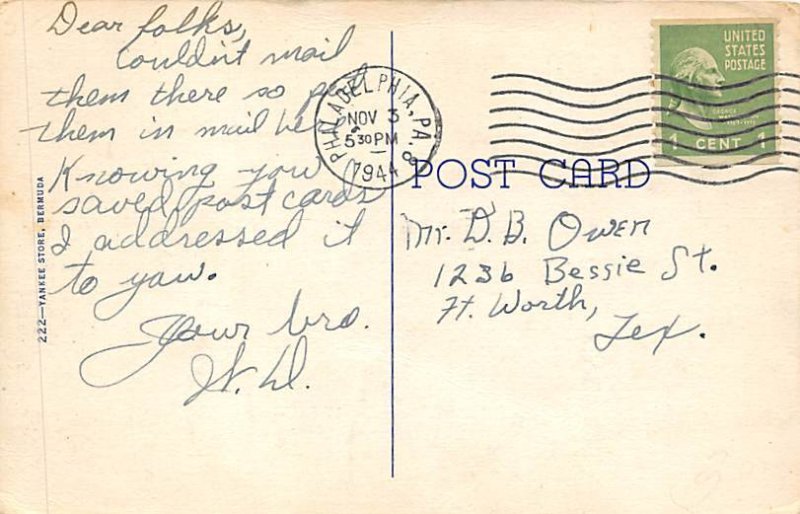 Dear folks,
Couldn't mail
them there so put
them in mail here
Knowing you
saved post cards
I addressed it
to yaw.
Your bro.
W. D.
222—YANKEE STORE, BERMUDA
PHILADELPHIA, PA. 8
NOV 3
5 30 PM
1944
UNITED
STATES
POSTAGE
GEORGE
WASHINGTON
1 CENT 1
POST CARD
Mr. D. B. Owen
1236 Bessie St.
Ft. Worth,
Tex.